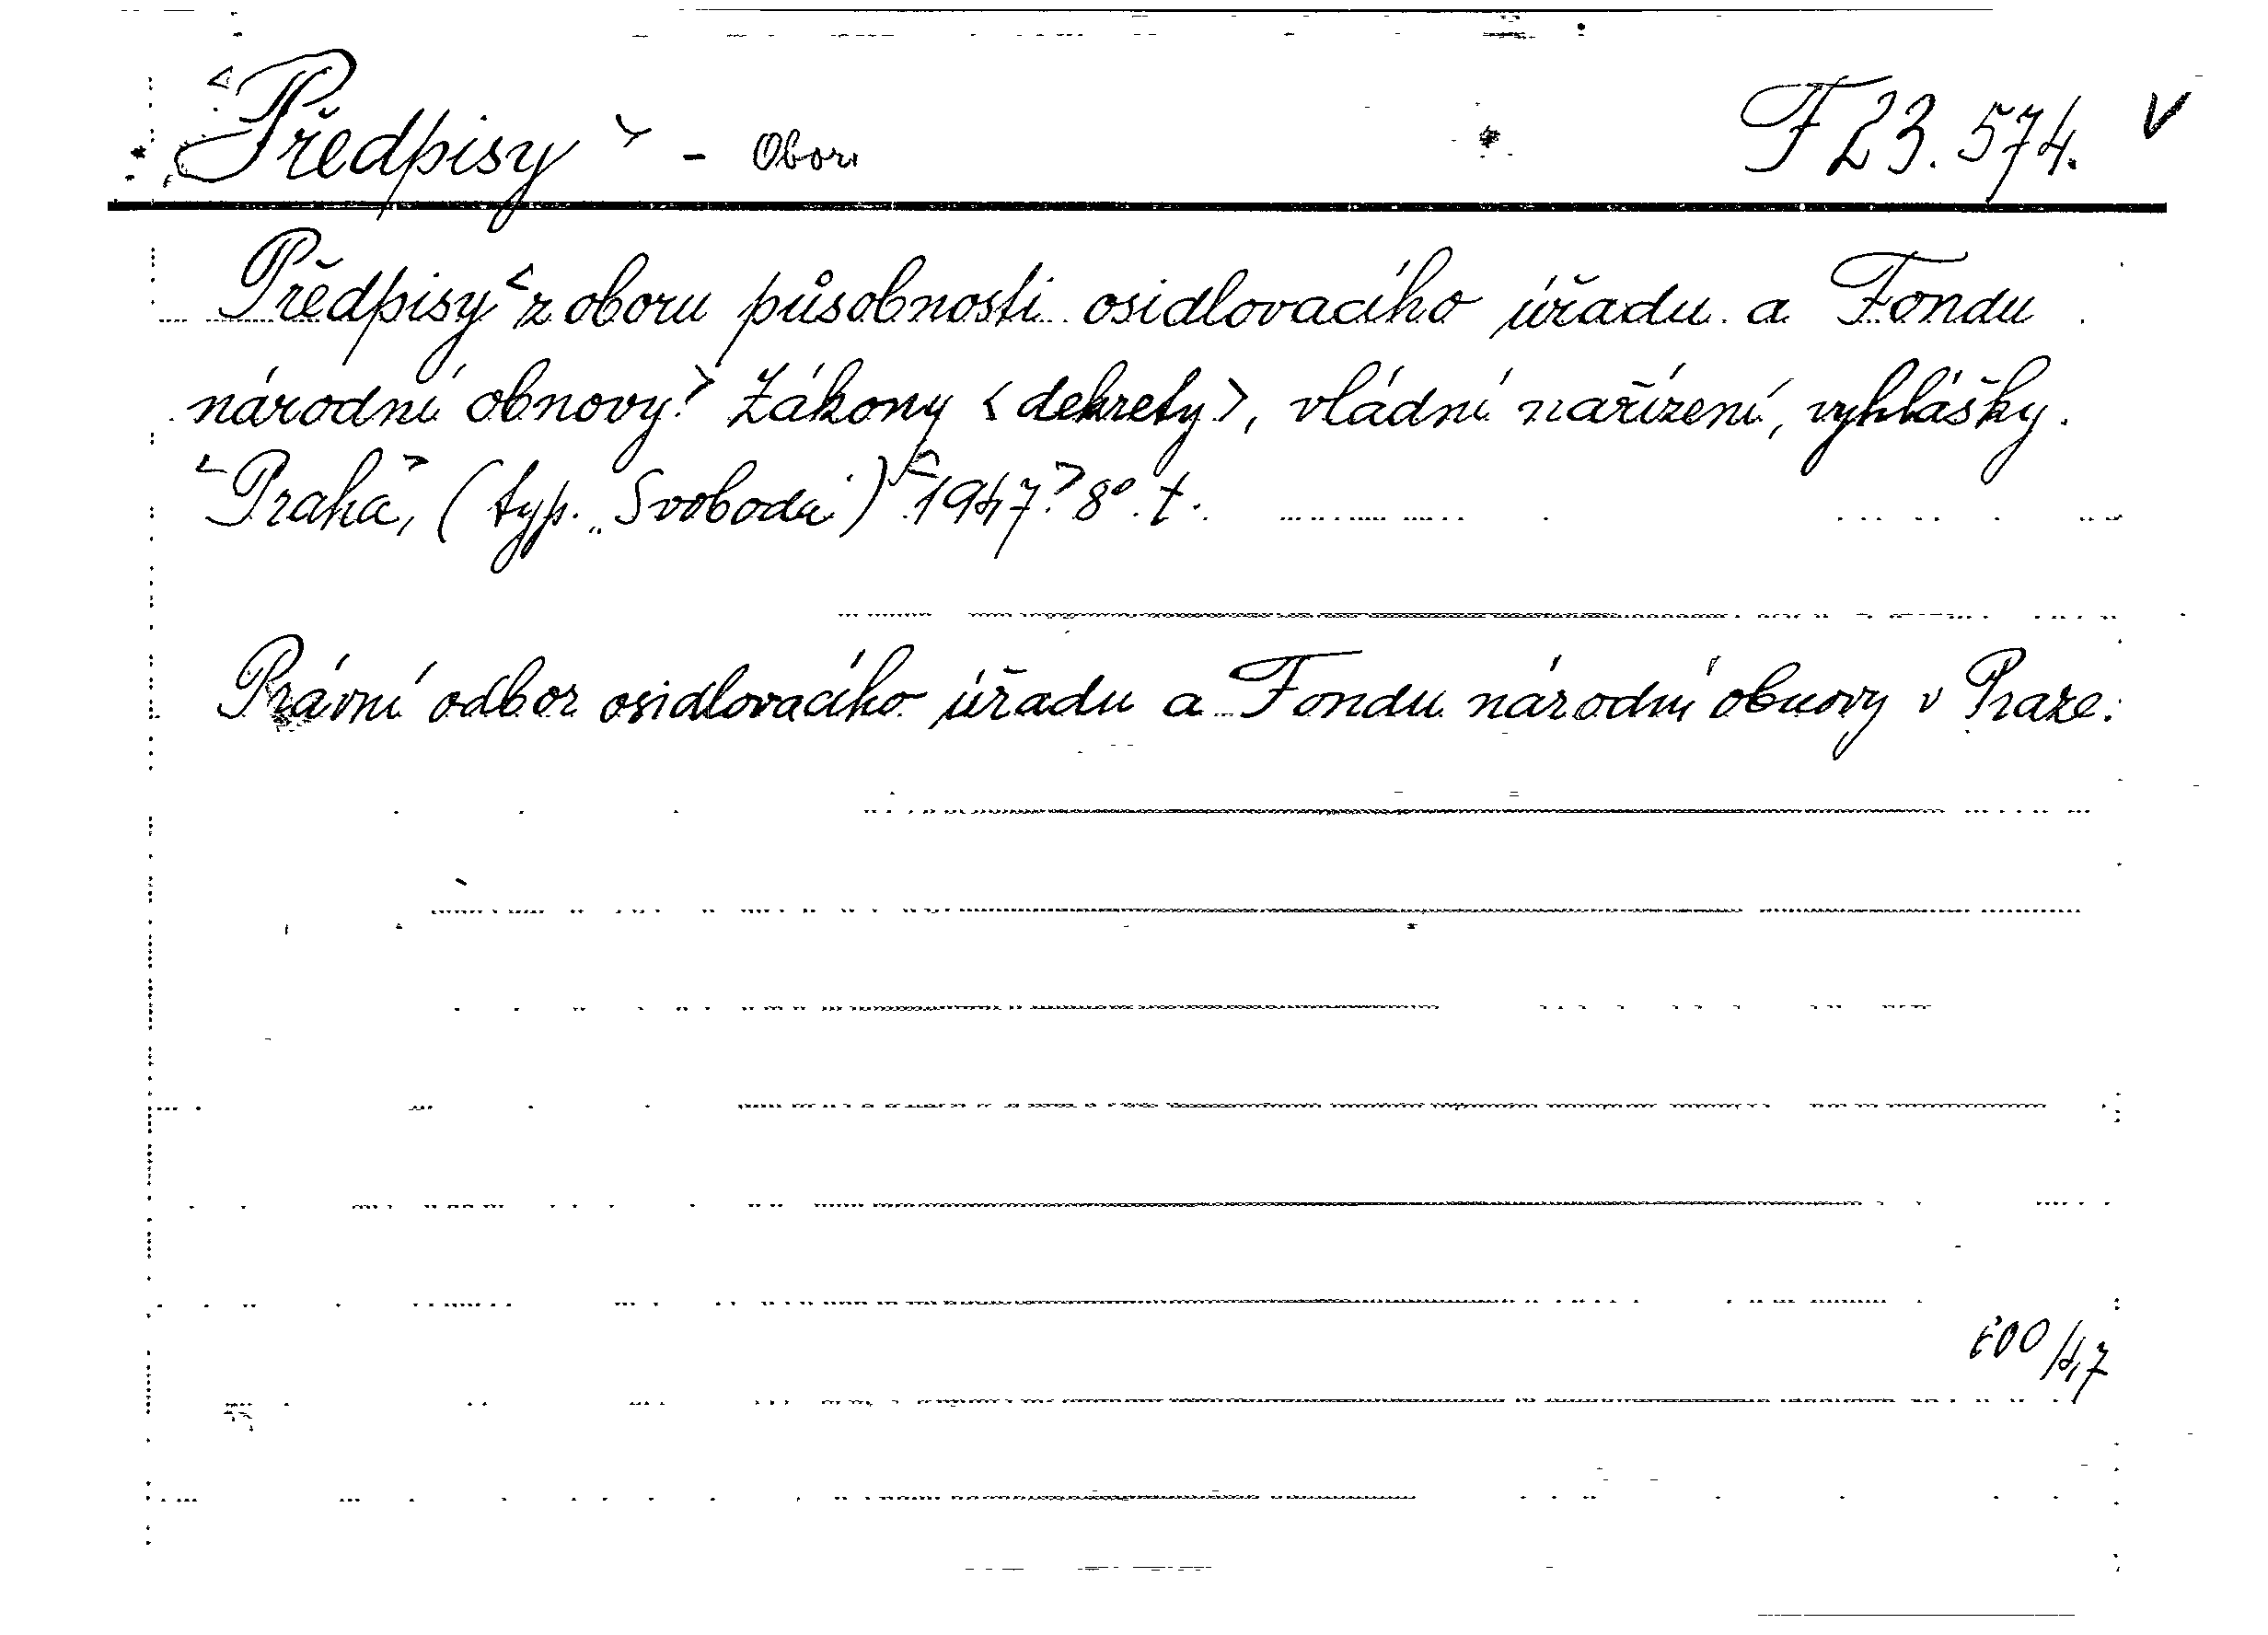 <Předpisy> - Obor F 23.574. V
Předpisy <z oboru působnosti osidlovacího úřadu a Fondu
národní obnovy.> Zákony <dekrety>, vládní nařízení, vyhlášky.
<Praha>, (typ. „Svoboda") <1947.> 8°. t.
Právní odbor osidlovacího úřadu a Fondu národní obnovy v Praze.
/47